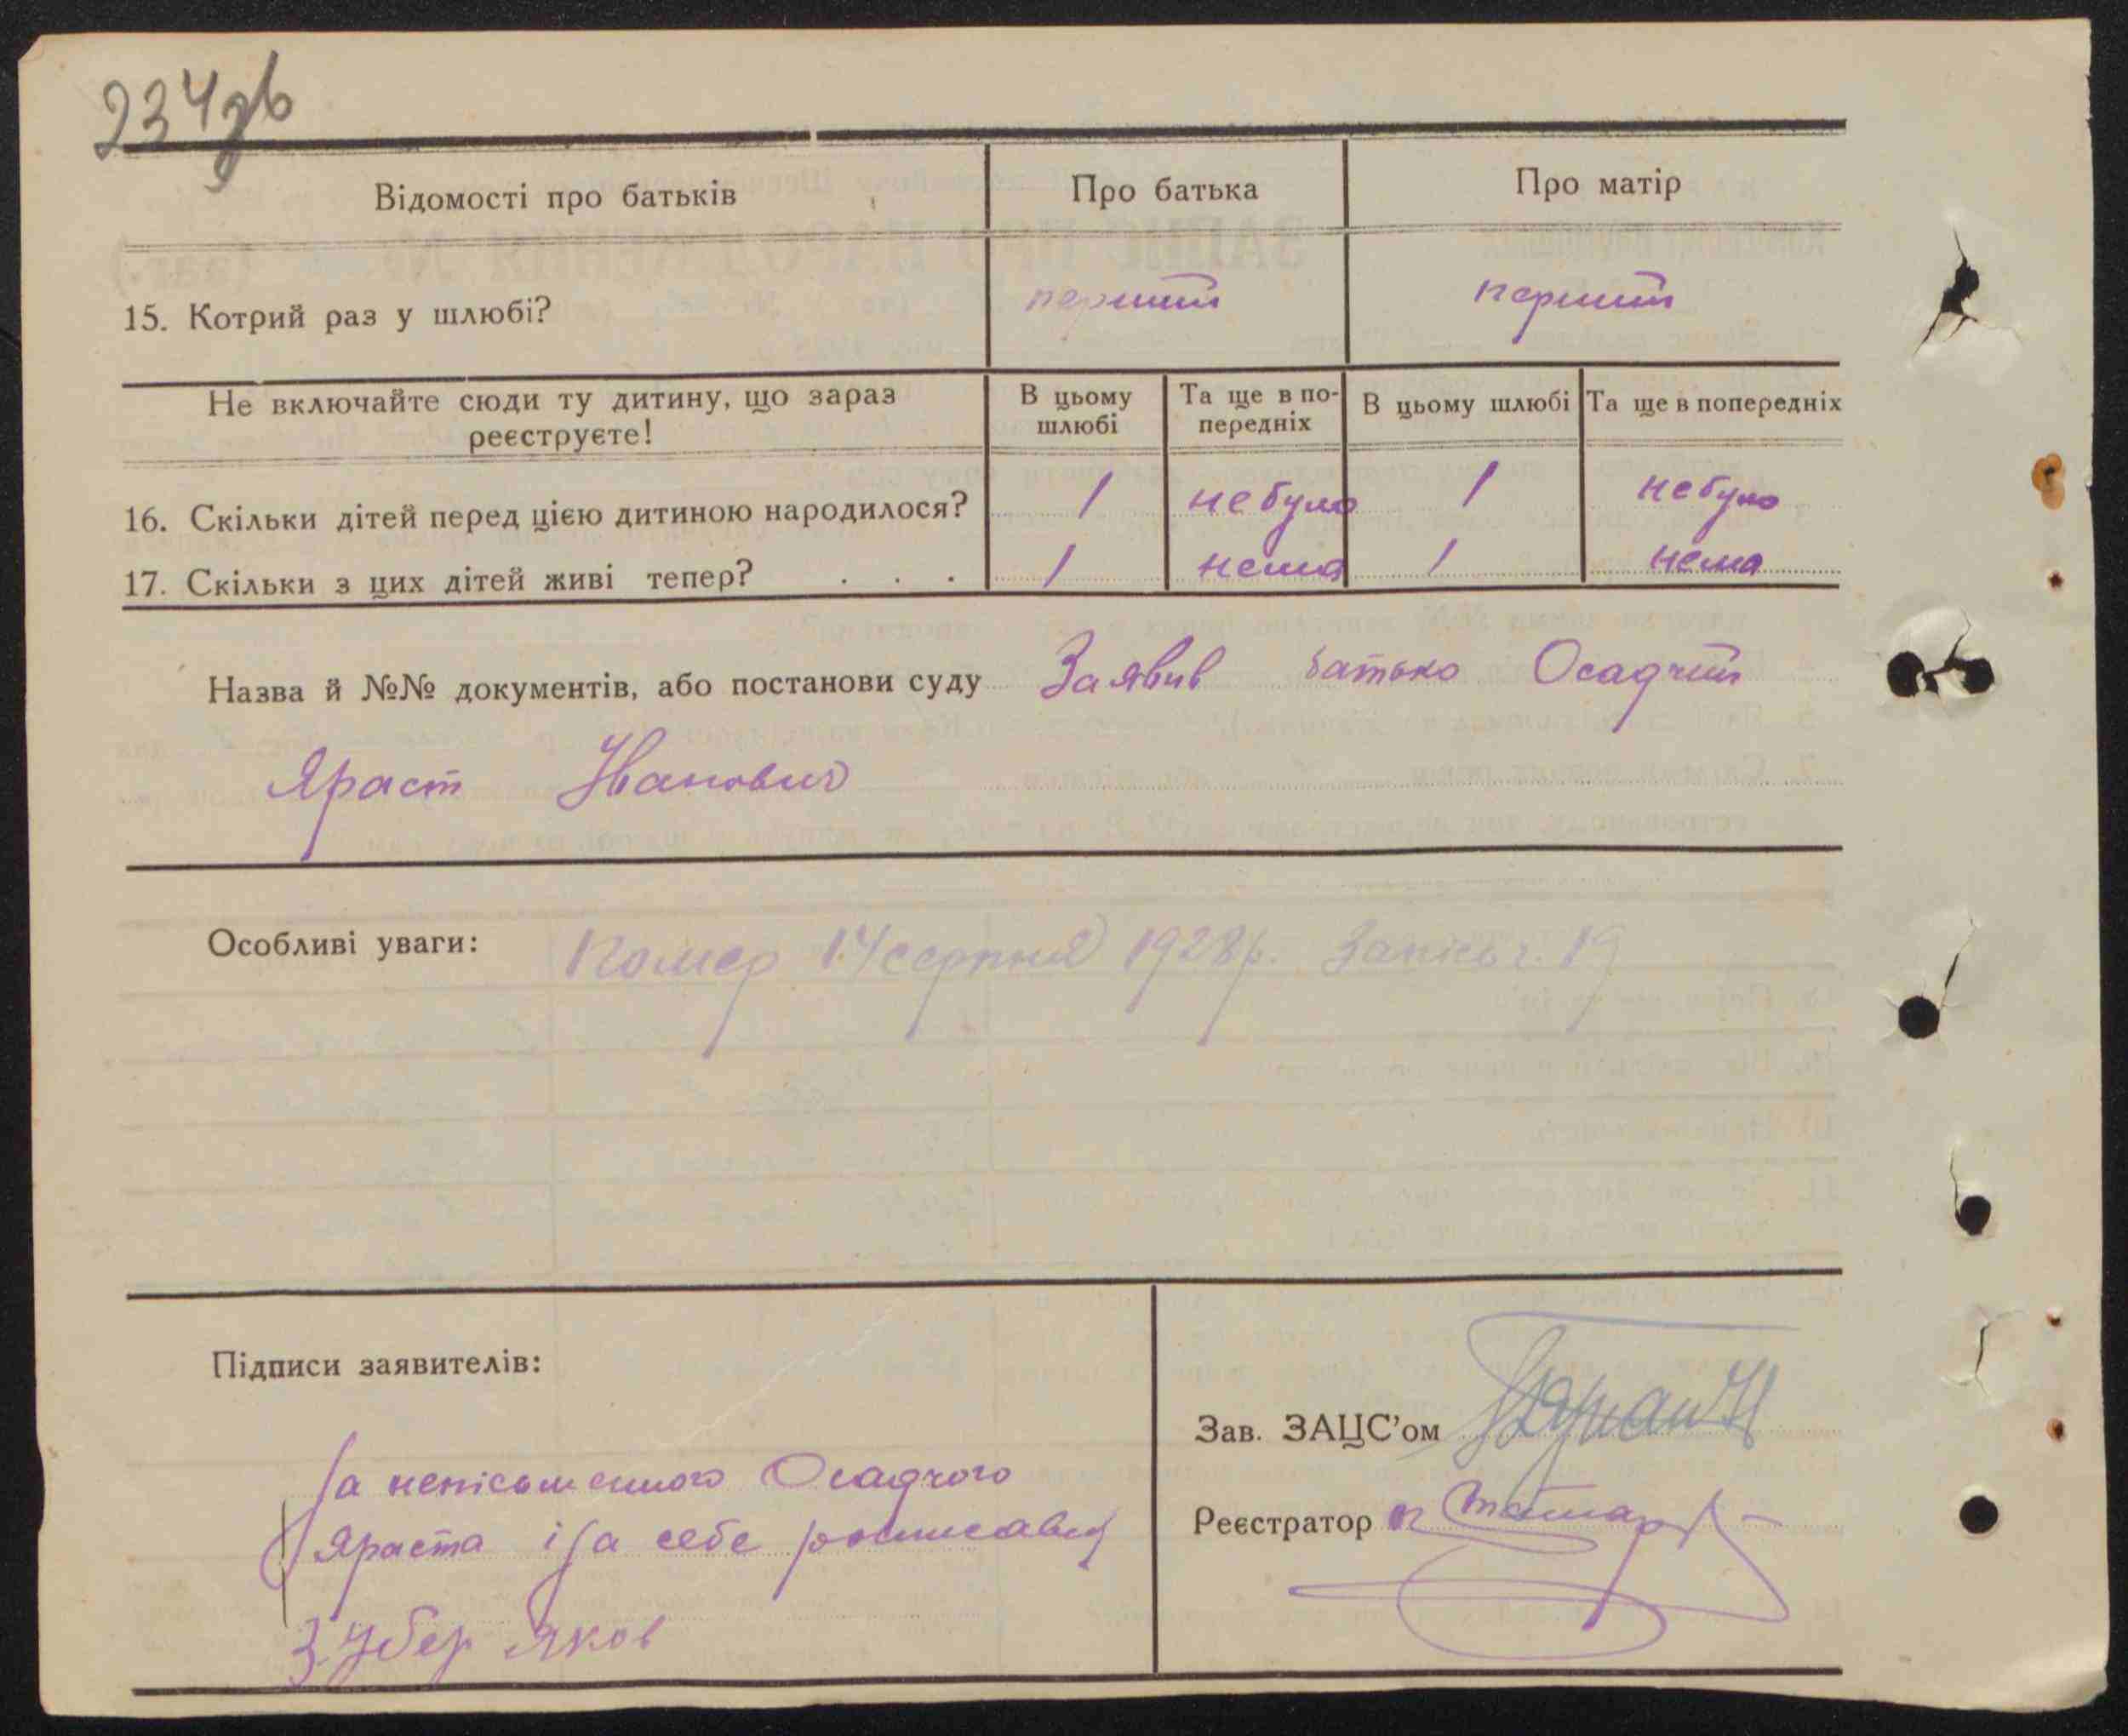 234зв
Відомості про батьків Про батька Про матір
15. Котрий раз у шлюбі? перший перший
Не включайте сюди ту дитину, що зараз реєструєте! В цьому шлюбі Та ще в попередніх В цьому шлюбі Та ще в попередніх
16. Скільки дітей перед цією дитиною народилося? 1 небуло 1 небуло
17. Скільки з цих дітей живі тепер? . . . 1 нема 1 нема
Назва й №№ документів, або постанови суду Заявив батько Осадчий
Яраст Іванович
Особливі уваги: Помер 14 серпня 1928р. Запись ч. 19
Підписи заявителів:
За неписьменного Осадчого
Яраста і за себе росписався
Яков
Зав. ЗАЦС’ом
Реєстратор